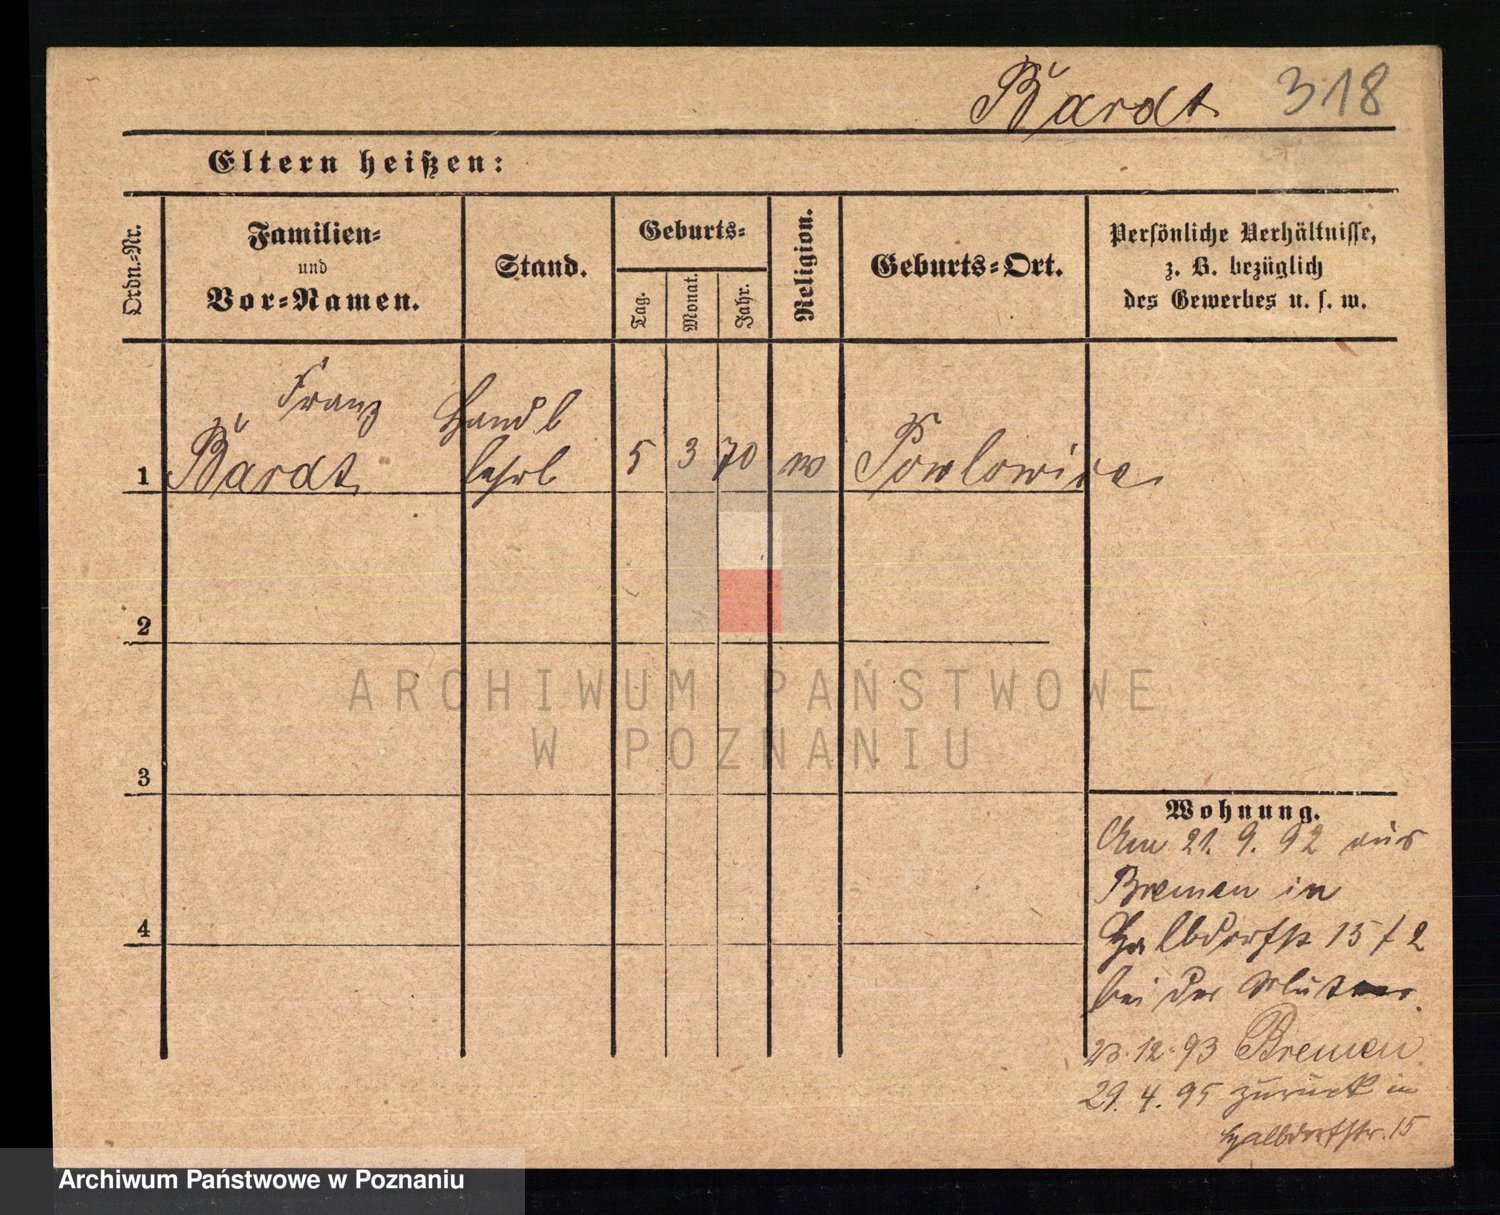 Bardt 318
Eltern heißen:
Ordn.-Nr.
Familien-
und
Vor-Namen.
Stand.
Geburts-
Tag.
Monat.
Jahr.
Religion.
Geburts-Ort.
Persönliche Verhältnisse,
z. B. bezüglich
des Gewerbes u. s. w.
Franz Handl
1 Bardt lehrl 5 3 70 Powlowice
2
ARCHIWUM PAŃSTWOWE
W POZNANIU
3
Wohnung.
Am 21. 9. 92 aus
Bremen in
4
Halbdorfstr 15 / 2
bei der Mutter.
23.12.93 Bremen
29. 4. 95 zurück in
Halbdorfstr. 15
Archiwum Państwowe w Poznaniu